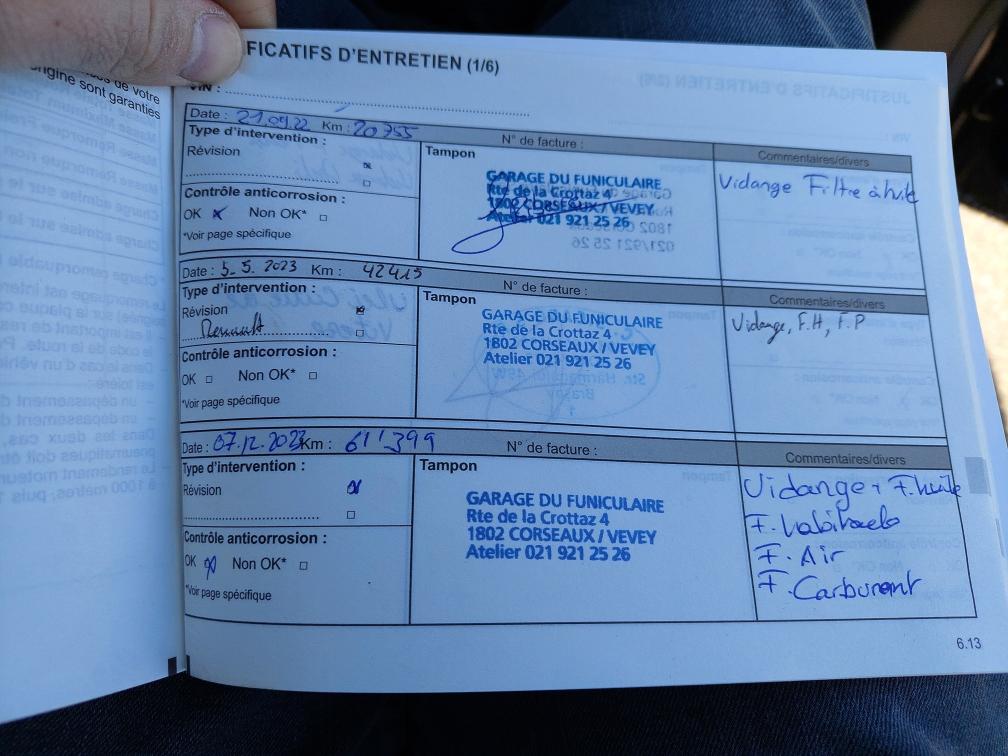 FICATIFS D'ENTRETIEN (1/6)
de votre
origine sont garanties
VIN :
Date : 21.09.22 Km : 20755 N° de facture :
Type d'intervention :
Révision
Contrôle anticorrosion :
OK Non OK*
*Voir page spécifique
Tampon
GARAGE DU FUNICULAIRE
Rte de la Crottaz 4
1802 CORSEAUX / VEVEY
Atelier 021 921 25 26
Commentaires/divers
Vidange Filtre à huile
Date : 5.5.2023 Km : 42415 N° de facture :
Type d'intervention :
Révision
Renault
Contrôle anticorrosion :
OK Non OK*
*Voir page spécifique
Tampon
GARAGE DU FUNICULAIRE
Rte de la Crottaz 4
1802 CORSEAUX / VEVEY
Atelier 021 921 25 26
Commentaires/divers
Vidange, F.H, F.P
Date : 07.12.2023 Km : 61'399 N° de facture :
Type d'intervention :
Révision
Contrôle anticorrosion :
OK Non OK*
*Voir page spécifique
Tampon
GARAGE DU FUNICULAIRE
Rte de la Crottaz 4
1802 CORSEAUX / VEVEY
Atelier 021 921 25 26
Commentaires/divers
Vidange + F.huile
F.
F. Air
F. Carburant
6.13